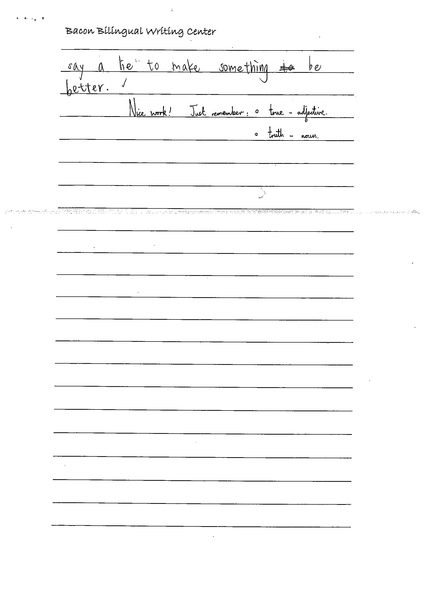 Bacon Bilingual Writing Center
say a lie to make something be
better. ✓
Nice work! Just remember: ∘ true - adjective.
∘ truth - noun.